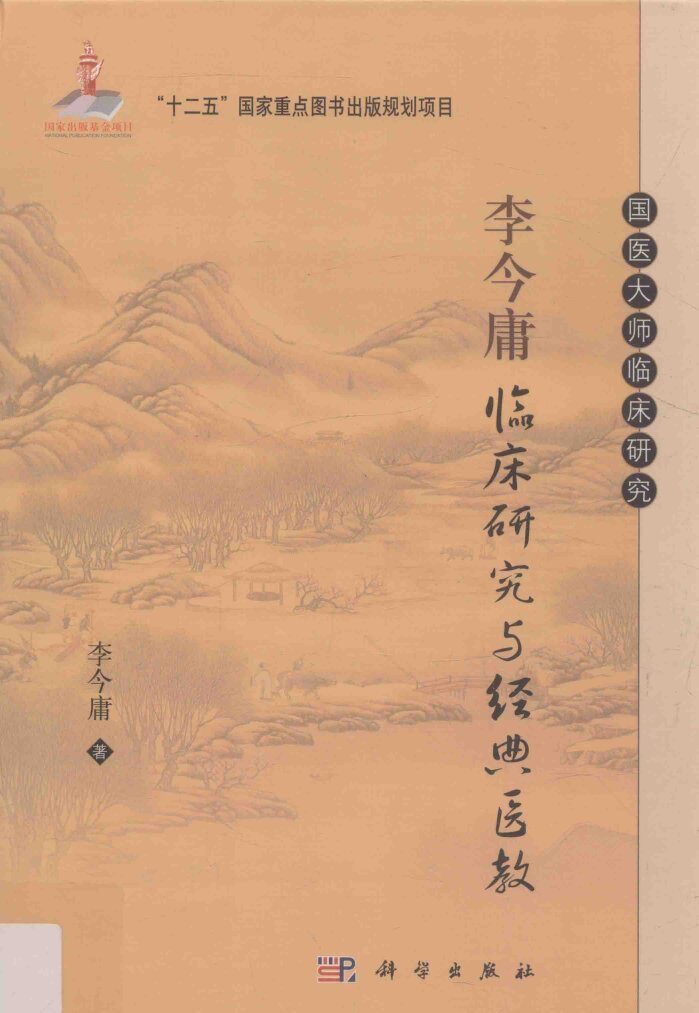 国家出版基金项目
NATIONAL PUBLICATION FOUNDATION
“十二五”国家重点图书出版规划项目
国医大师临床研究
李今庸临床研究与经典医教
李今庸 著
科学出版社